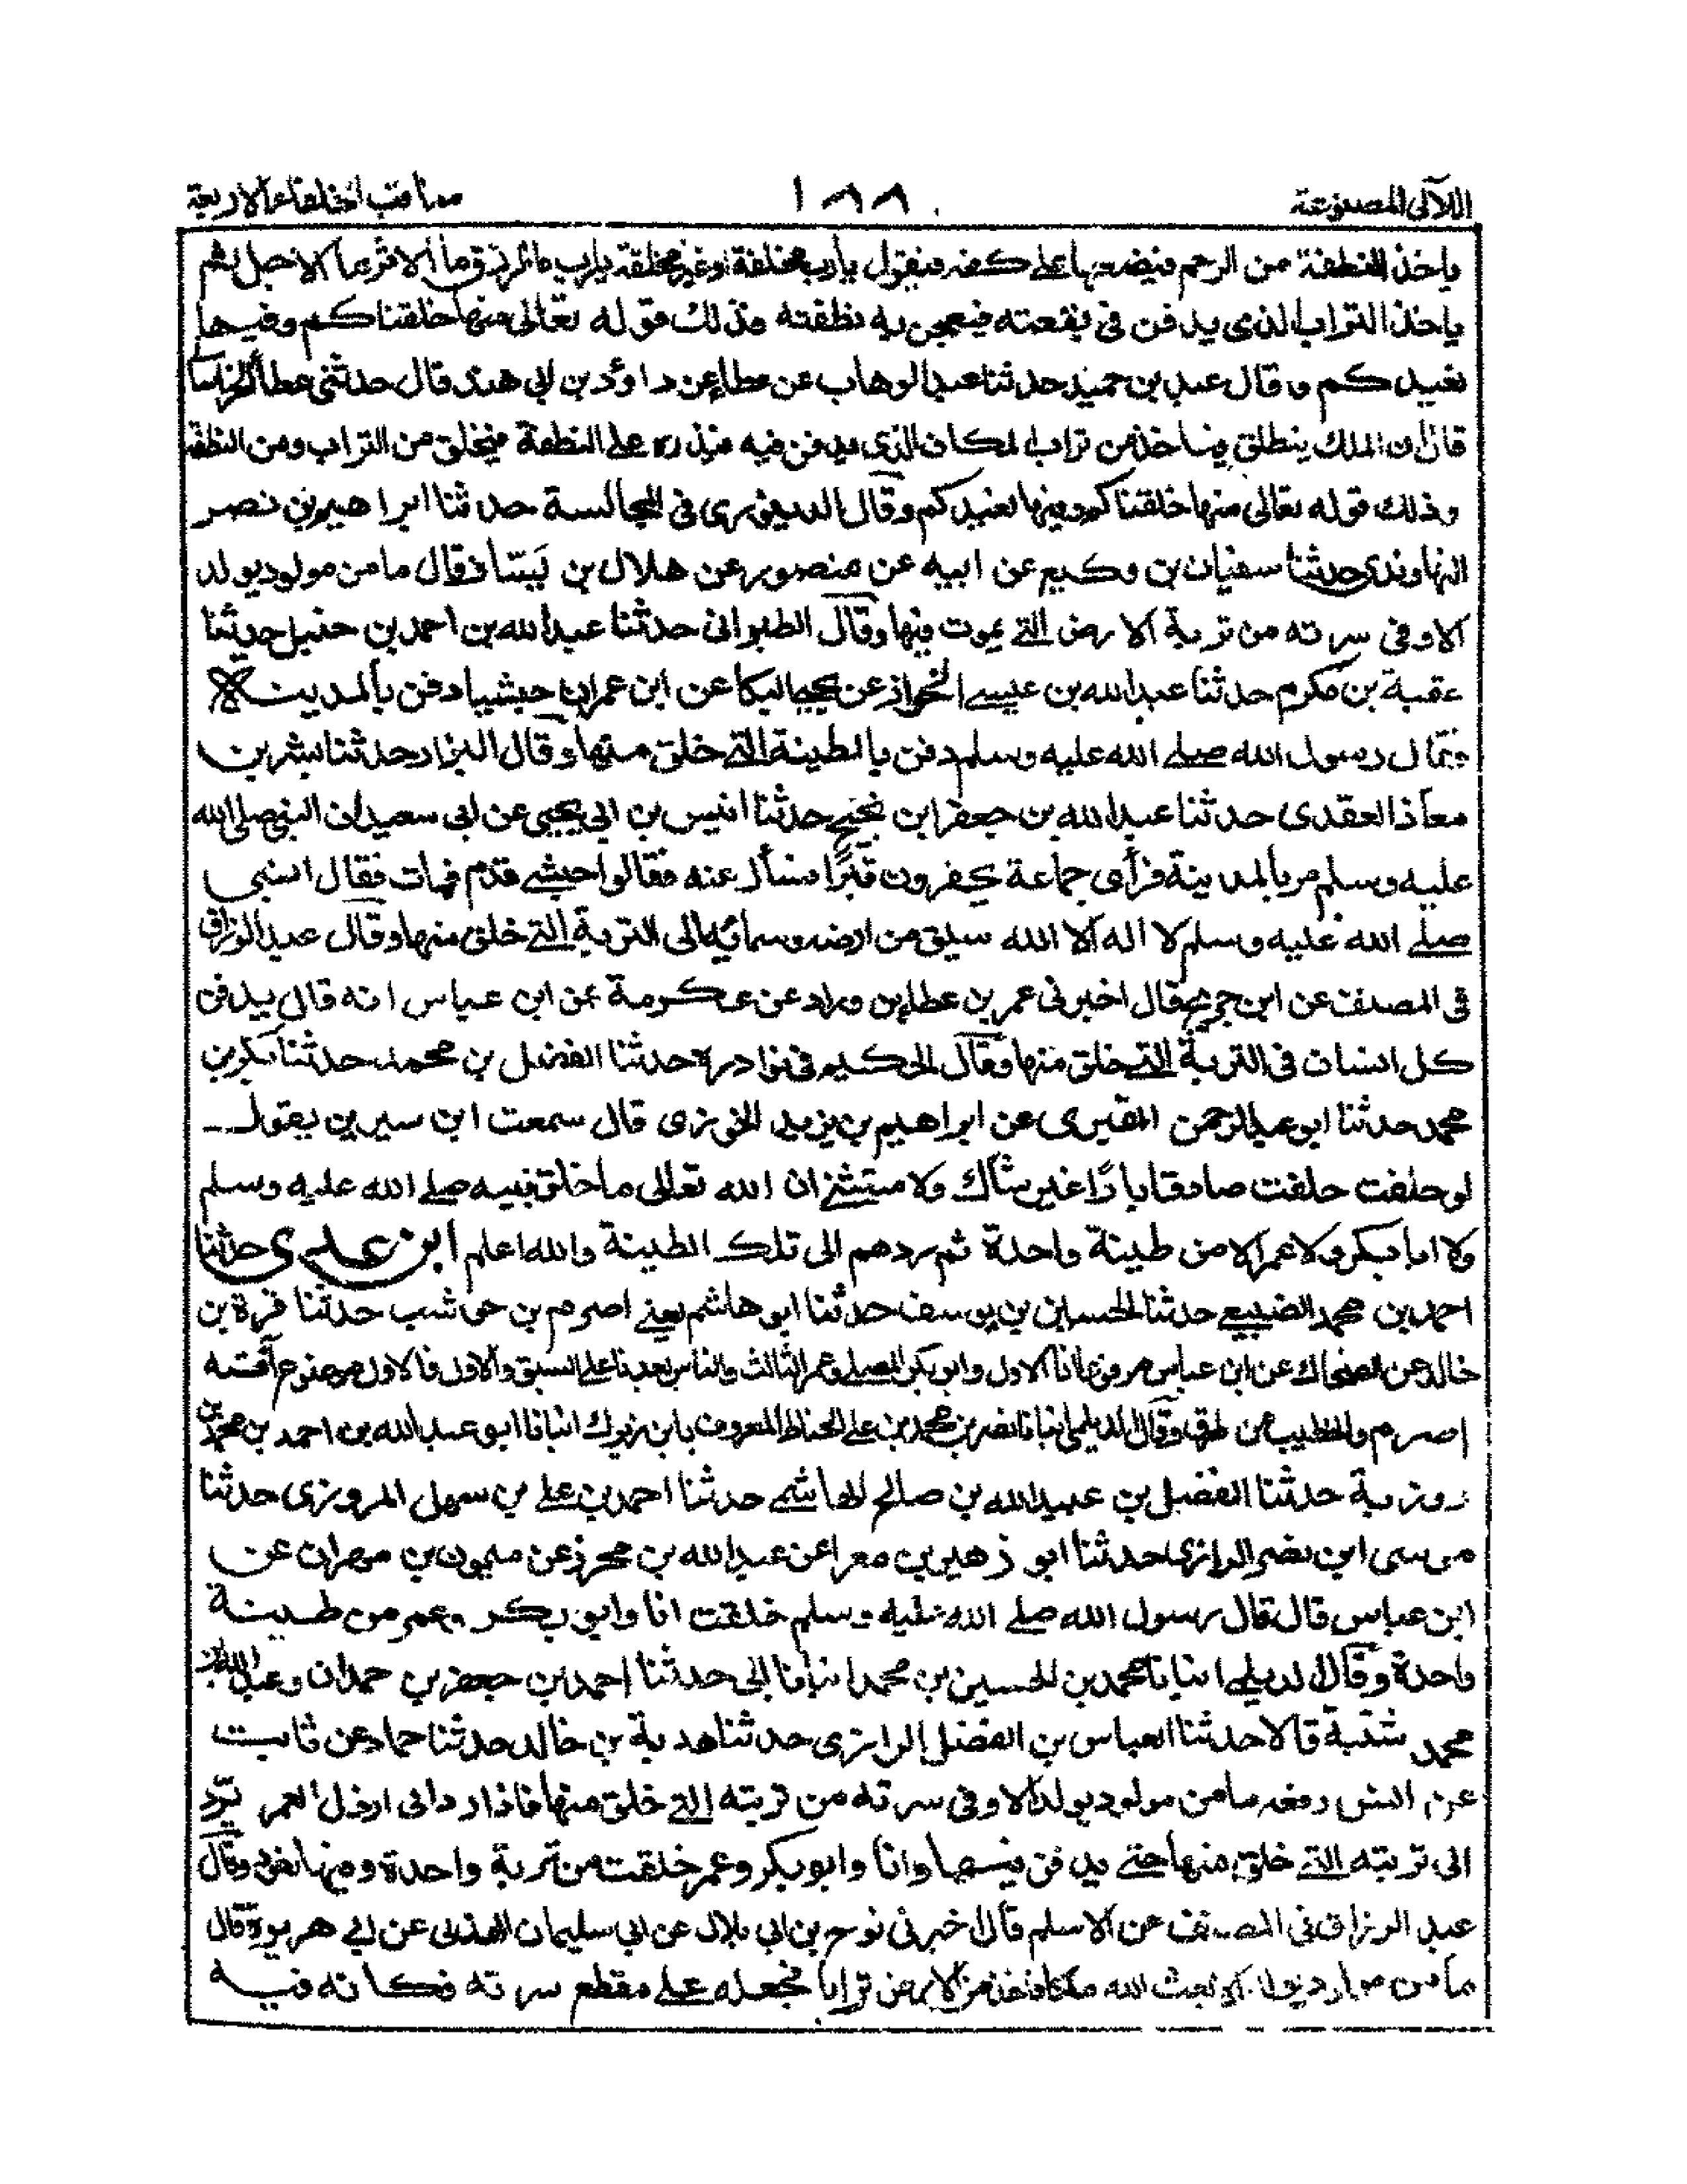 اللآلى المصنوعة ١٨٨ مناقب الخلفاء الاربعة
ياخذ النطفة من الرحم فيضعها على كفه فيقول يارب مخلقة او غير مخلقة يارب ما الرزق وما الاثر وما الاجل ثم
ياخذ التراب الذى يدفن فى بقعته فيعجن به نطفته فذلك قوله تعالى منها خلقناكم وفيها
نعيدكم وقال عبد بن حميد حدثنا عبد الوهاب عن عطاء عن داؤد بن ابى هند قال حدثنى عطاء الخراسا
قال ان الملك ينطلق فياخذ من تراب المكان الذى يدفن فيه فيذره على النطفة فيخلق من التراب ومن النطفة
وذلك قوله تعالى منها خلقناكم وفيها نعيدكم وقال الدينورى فى المجالسة حدثنا ابراهيم بن نصر
النهاوندى حدثنا سفيان بن وكيع عن ابيه عن منصور عن هلال بن يساف قال ما من مولود يولد
الا وفى سرته من تربة الارض التے يموت فيها وقال الطبرانى حدثنا عبد الله بن احمد بن حنبل حدثنا
عقبة بن مكرم حدثنا عبد الله بن عيسے الخزاز عن يحيى البكا عن ابن عمر ان حبشيا دفن بالمدينة
فقال رسول الله صلے الله عليه وسلم دفن بالطينة التے خلق منها وقال البزار حدثنا بشر بن
معاذ العقدى حدثنا عبد الله بن جعفر ابن نجيح حدثنا انيس بن ابى يحيى عن ابى سعيد ان النبى صلى الله
عليه وسلم مر بالمدينة فرأى جماعة يحفرون قبرًا فسأل عنه فقالوا حبشے قدم فمات فقال النبى
صلے الله عليه وسلم لا اله الا الله سيق من ارضه وسمائه الى التربة التے خلق منها وقال عبد الرزاق
فى المصنف عن ابن جريج قال اخبرنى عمر بن عطاء بن وراد عن عكرمة عن ابن عباس انه قال يدفن
كل انسان فى التربة التے خلق منها وقال الحكيم فى نوادره حدثنا الفضل بن محمد حدثنا بكر بن
محمد حدثنا ابو عبد الرحمن المقيرى عن ابراهيم بن يزيد الخوزى قال سمعت ابن سيرين يقول
لو حلفت حلفت صادقا بارًا غير شاك ولا مستثن ان الله تعالى ما خلق نبيه صلے الله عليه وسلم
ولا ابا بكر ولا عمر الا من طينة واحدة ثم ردهم الى تلك الطينة والله اعلم ابن عدى حدثنا
احمد بن محمد الضبيعے حدثنا الحسين بن يوسف حدثنا ابو هاشم يعنے اصرم بن حوشب حدثنا قرة بن
خالد عن الضحاك عن ابن عباس مرفوعا انا الاول وابو بكر المصلى وعمر الثالث والناس بعدنا على السبق والاول فالاول موضوع آفته
اصرم والخطيب من طرق وقال الديلمى انبانا نصر بن محمد بن على الخياط المعروف بابن زيرك انبانا ابو عبد الله بن احمد بن محمد بن
روزبة حدثنا الفضل بن عبيد الله بن صالح الهاشمے حدثنا احمد بن على بن سهل المروزى حدثنا
موسى ابن نصر الرازى حدثنا ابو زهير بن معرا عن عبد الله بن محرز عن ميمون بن مهران عن
ابن عباس قال قال رسول الله صلے الله عليه وسلم خلقت انا وابو بكر وعمر من طينة
واحدة وقال الديلمے انبانا محمد بن الحسين بن محمد انبانا ابى حدثنا احمد بن جعفر بن حمدان وعبد الله بن
محمد شنبة قالا حدثنا العباس بن الفضل الرازى حدثنا هدبة بن خالد حدثنا حماد عن ثابت
عن انس رفعه ما من مولود يولد الا وفى سرته من تربته التے خلق منها فاذا رد الى ارذل العمر يرد
الى تربته التے خلق منها حتے يدفن فيها وانا وابو بكر وعمر خلقت من تربة واحدة وفيها نعود وقال
عبد الرزاق فى المصنف عن الاسلم قال اخبرنى نوح بن ابى بلال عن ابى سليمان الهذلى عن ابى هريرة قال
ما من مولود يولد الا بعث الله ملكا فاخذ من الارض ترابا فجعله على مقطع سرته فكانه فيه